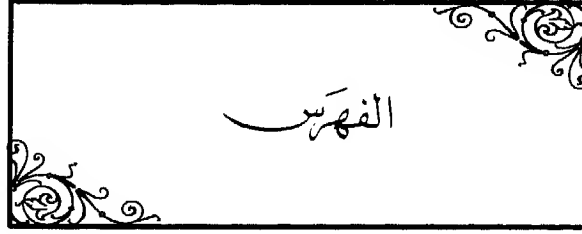 الفهَرس